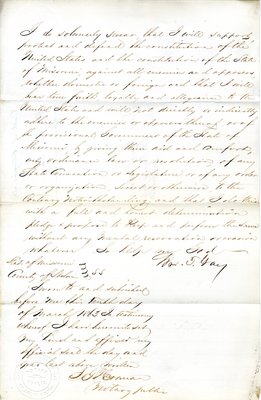 I do solemnly swear that I will support
protect and defend the constitution of the
United States and the constitution of the State
of Missouri, against all enemies and opposers
whether domestic or foreign and that I will
bear true faith loyalty and allegiance to the
United States and will not directly or indirectly
adhere to the enemies or opposers of
the provisional Government of the State of
Missouri by giving them aid and comfort,
any ordinance law or resolution of any
State Convention or legislature or of any order
or organization secret or otherwise to the
Contrary notwithstanding, and that I do this
with a full and honest determination
pledge & purpose to keep and perform the same
without any mental reservation or evasion
whatever So help me God
Wm. T. Gay
State of Missouri
County of SS
Sworn to and subscribed
before me this tenth day
of March 1863 In testimony
whereof I have hereunto set
my hand and affixed my
official seal the day and
year last above written
Notary public